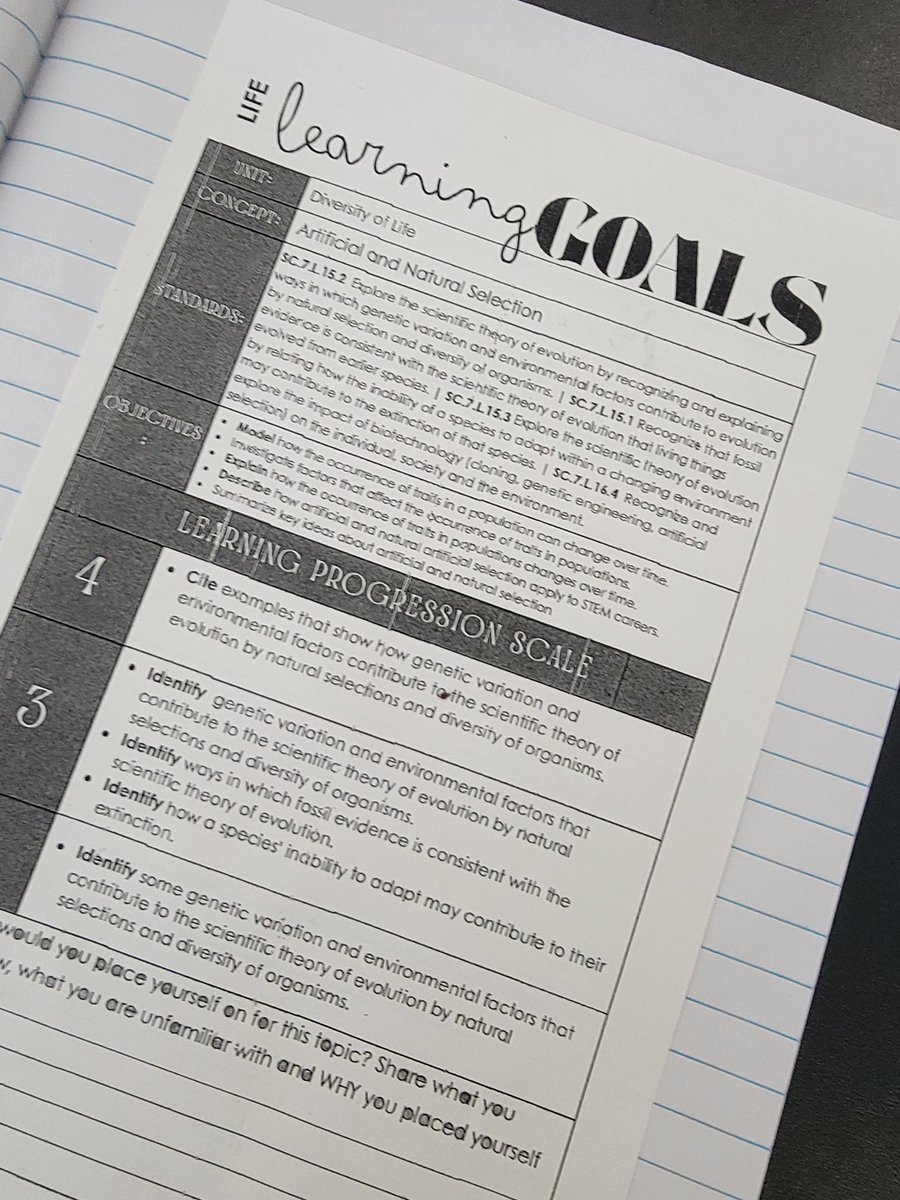 LIFE
learning GOALS
UNIT:
Diversity of Life
CONCEPT:
Artificial and Natural Selection
STANDARDS:
SC.7.L.15.2 Explore the scientific theory of evolution by recognizing and explaining
ways in which genetic variation and environmental factors contribute to evolution
by natural selection and diversity of organisms. | SC.7.L.15.1 Recognize that fossil
evidence is consistent with the scientific theory of evolution that living things
evolved from earlier species. | SC.7.L.15.3 Explore the scientific theory of evolution
by relating how the inability of a species to adapt within a changing environment
may contribute to the extinction of that species. | SC.7.L.16.4 Recognize and
explore the impact of biotechnology (cloning, genetic engineering, artificial
selection) on the individual, society and the environment.
OBJECTIVES
:
• Model how the occurrence of traits in a population can change over time.
• Investigate factors that affect the occurrence of traits in populations.
• Explain how the occurrence of traits in populations changes over time.
• Describe how artificial and natural artificial selection apply to STEM careers.
• Summarize key ideas about artificial and natural selection
LEARNING PROGRESSION SCALE
4
• Cite examples that show how genetic variation and
environmental factors contribute to the scientific theory of
evolution by natural selections and diversity of organisms.
3
• Identify genetic variation and environmental factors that
contribute to the scientific theory of evolution by natural
selections and diversity of organisms.
• Identify ways in which fossil evidence is consistent with the
scientific theory of evolution.
• Identify how a species' inability to adapt may contribute to their
extinction.
• Identify some genetic variation and environmental factors that
contribute to the scientific theory of evolution by natural
selections and diversity of organisms.
would you place yourself on for this topic? Share what you
what you are unfamiliar with and WHY you placed yourself